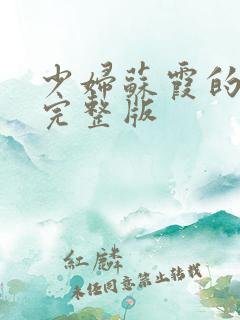 少婦蘇霞的
完整版
紅麟
未经同意禁止转载